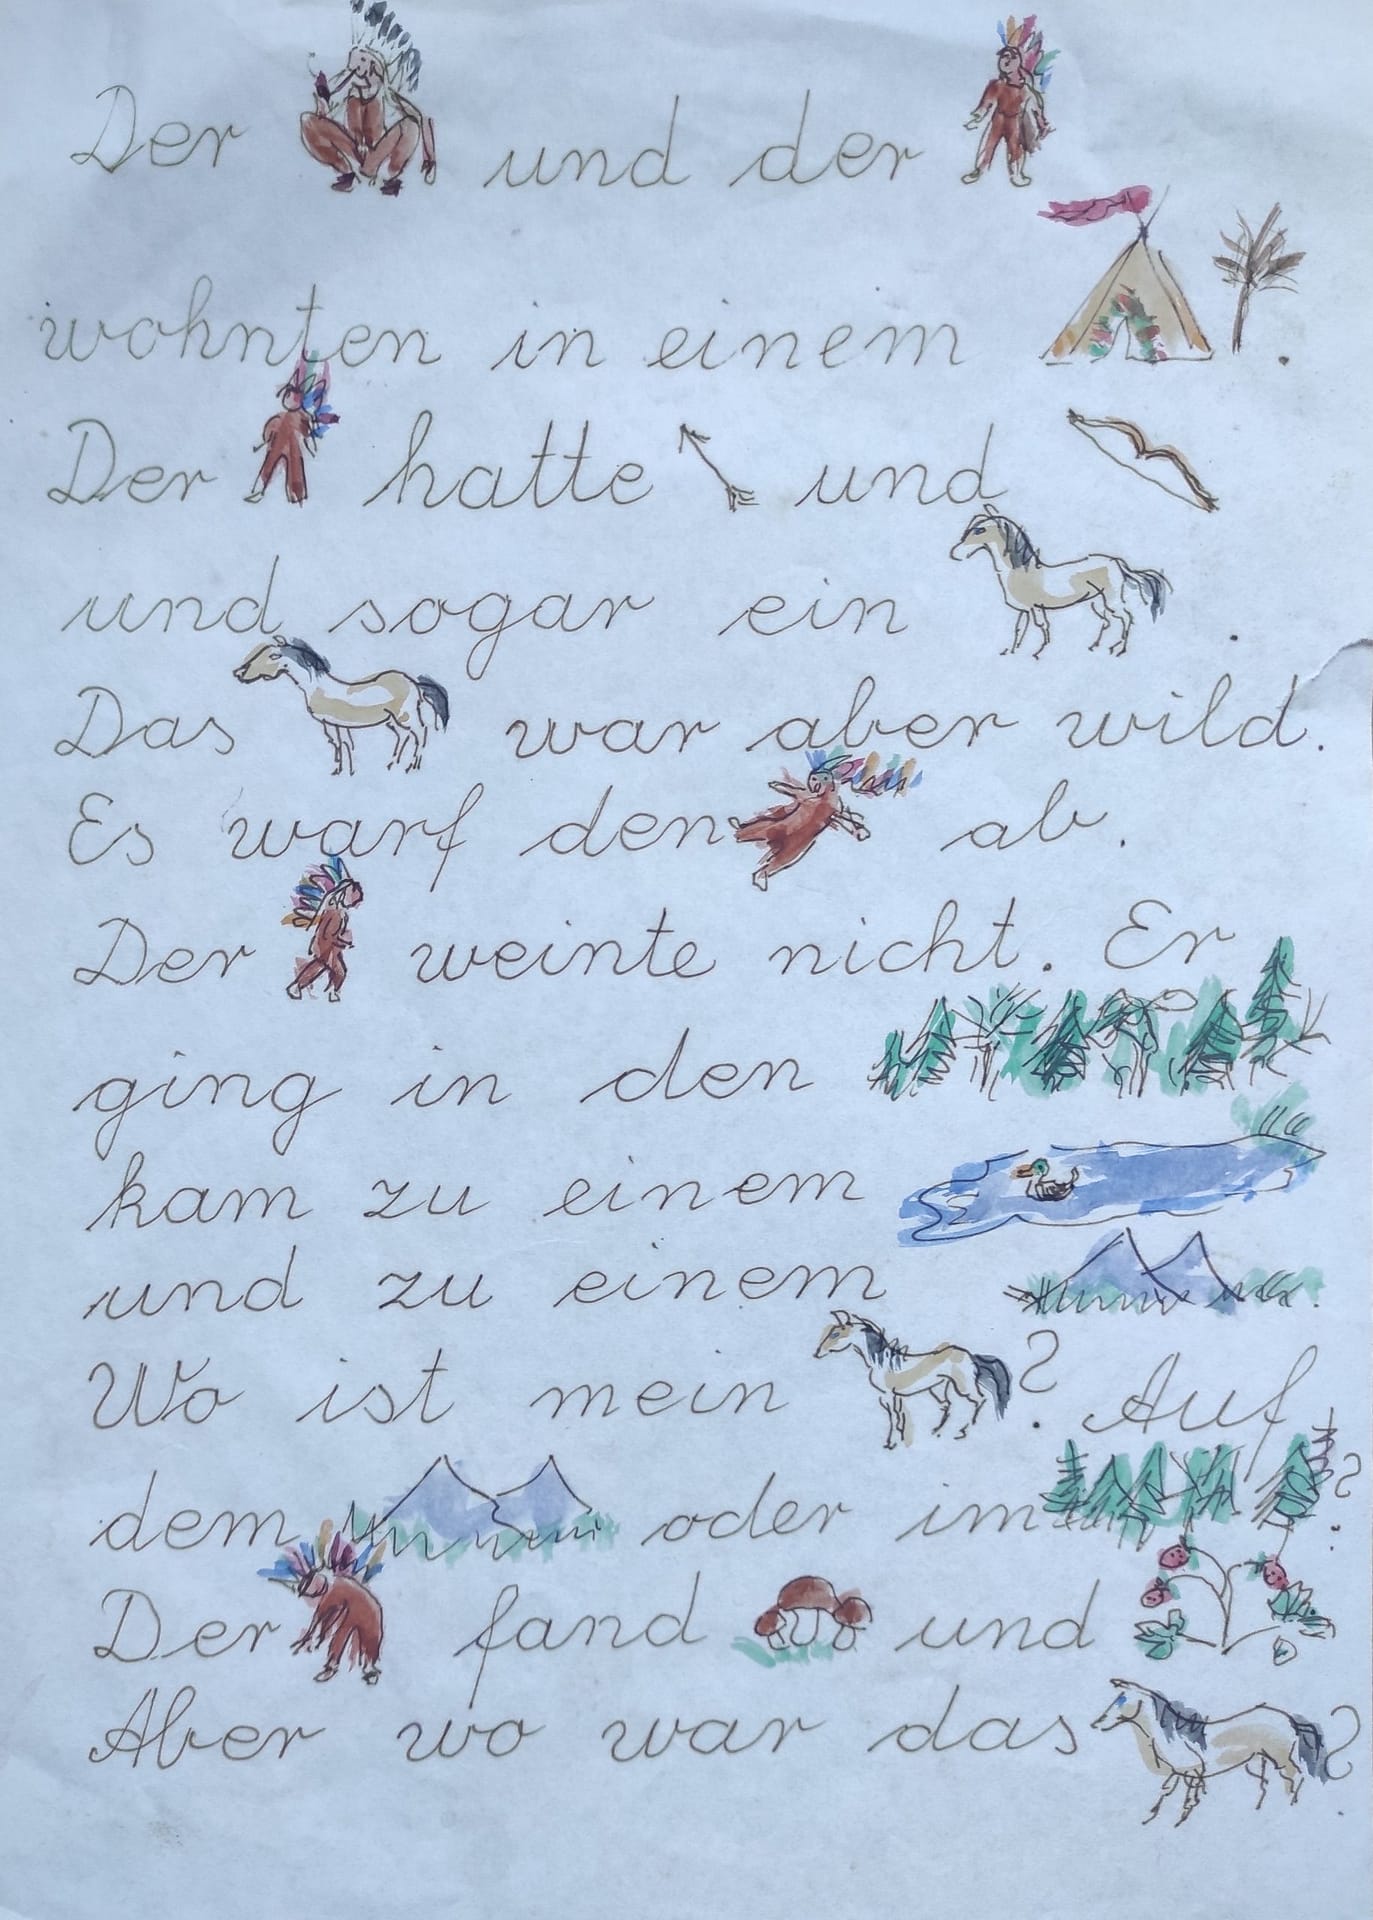 Der und der
wohnten in einem .
Der hatte und
und sogar ein .
Das war aber wild.
Es warf den ab.
Der weinte nicht. Er
ging in den
kam zu einem
und zu einem .
Wo ist mein ? Auf
dem oder im ?
Der fand und
Aber wo war das ?